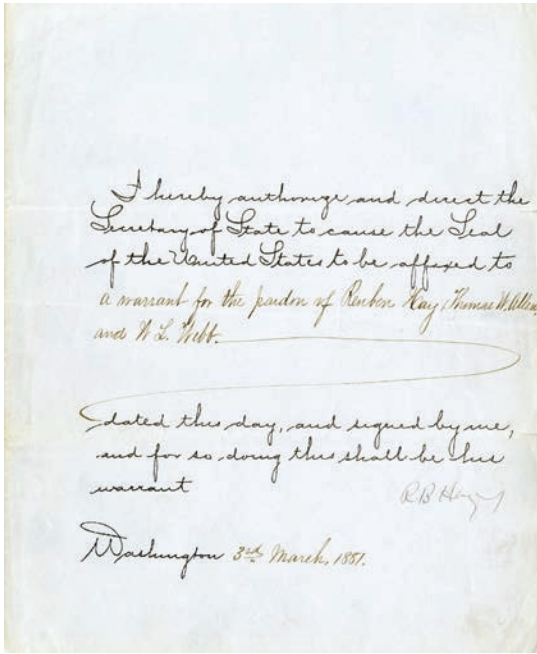 I hereby authorize and direct the
Secretary of State to cause the Seal
of the United States to be affixed to
a warrant for the pardon of Reuben Kay, Thomas W.
and W. L. Webb.
dated this day, and signed by me,
and for so doing this shall be his
warrant
R B Hayes
Washington 3rd March, 1881.